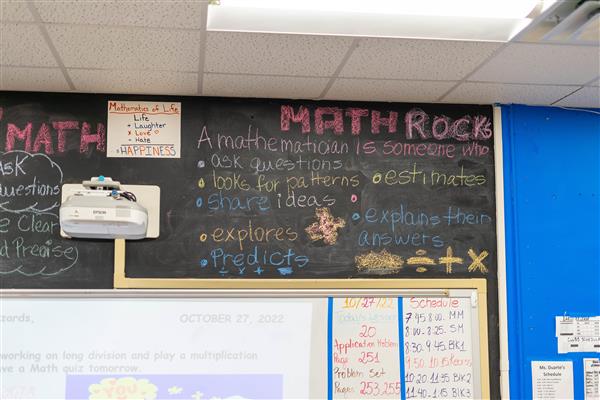 MATH
Mathematics of Life
Life
+ Laughter
x Love
- Hate
= HAPPINESS
MATH ROCK
A mathematician is someone who
• ask questions
• looks for patterns
• estimates
• share ideas
• explains their
answors
• explores
• Predicts
ASK
uestions
e Clear
d Precise
EPSON
zards,
OCTOBER 27, 2022
working on long division and play a multiplication
ave a Math quiz tomorrow.
10/27/22
Today's Lesson
20
Application Problem
Page 251
Problem Set
Pages 253, 255
Schedule
7:45-8:00- MM
8:00-8:25- SM
8:30-9:45 BK1
9:50-10:15 Recess
10:20-11:35 BK2
11:40-1:15 BK3
Ms. Duarte's
Schedule